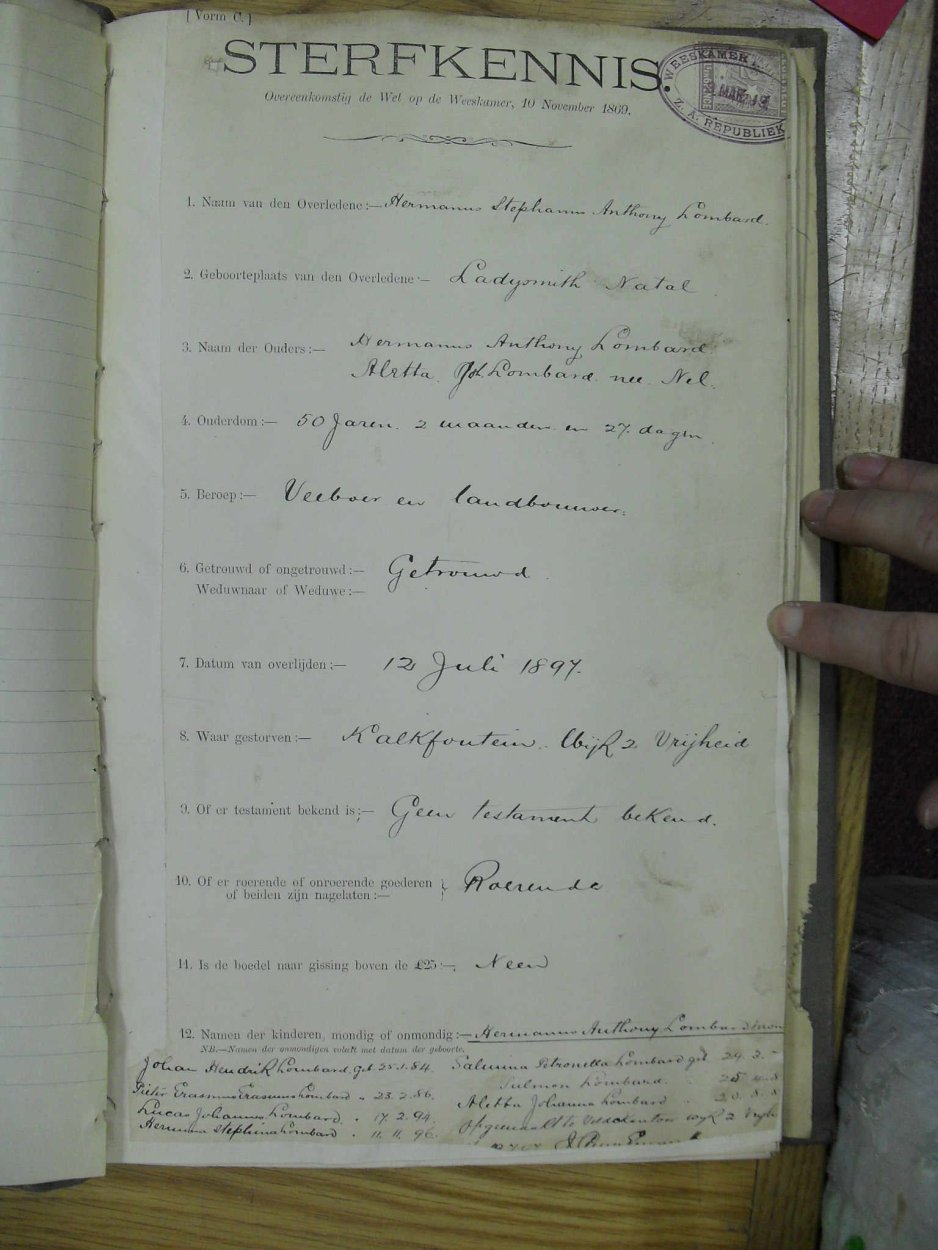 [ Vorm C. ]
STERFKENNIS.
Overeenkomstig de Wet op de Weeskamer, 10 November 1869.
WEESKAMER
MAR
Z. A. REPUBLIEK
1. Naam van den Overledene:— Hermanus Stephanus Anthony Lombard.
2. Geboorteplaats van den Overledene:— Ladysmith Natal
3. Naam der Ouders:— Hermanus Anthony Lombard
Aletta Joh. Lombard nee Nel.
4. Ouderdom:— 50 Jaren. 2 maanden en 27. dagen
5. Beroep:— Veeboer en landbouwer.
6. Getrouwd of ongetrouwd:— Getrouwd
Weduwnaar of Weduwe:—
7. Datum van overlijden:— 12 Juli 1897.
8. Waar gestorven:— Kalkfontein. Wijk 2 Vrijheid
9. Of er testament bekend is:— Geen testament bekend.
10. Of er roerende of onroerende goederen } Roerende
of beiden zijn nagelaten:—
11. Is de boedel naar gissing boven de £25:— Neen
12. Namen der kinderen, mondig of onmondig:— Hermanus Anthony Lombard
NB.—Namen der onmondigen voluit met datum der geboorte.
Johan Hendrik Lombard. geb 25.1.84. Salumina Petronella Lombard geb 24. 2.
Pieter Erasmus Erasmus Lombard " 23.2.86. Lombard.
Lucas Johannes Lombard. " 17.2.94. Aletta Johanna Lombard
Hermina Stephina Lombard " 11.11.96. Opgemaakt te wijk 2